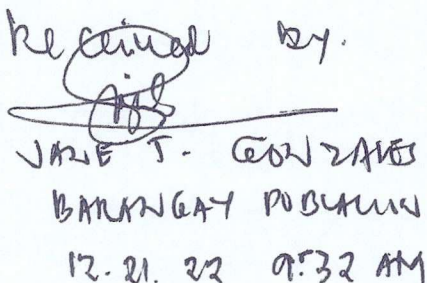 Received by.
JANE T. GONZALES
BARANGAY POBLACION
12.21.22 9:32 AM